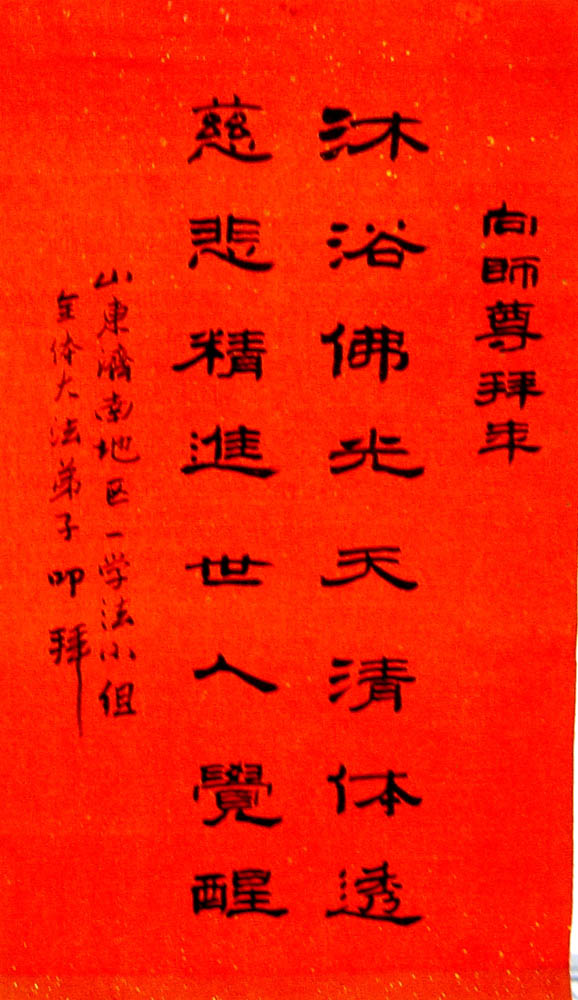 向師尊拜年
沐浴佛光天清体透
慈悲精進世人覺醒
山東濟南地区一学法小组
全体大法弟子叩拜